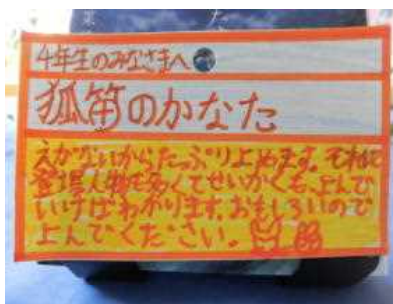 4年生のみなさまへ
狐笛のかなた
えがないからたっぷりよめます。それに
登場人物も多くてせいかくも、よんで
いけばわかります。おもしろいので
よんでください。